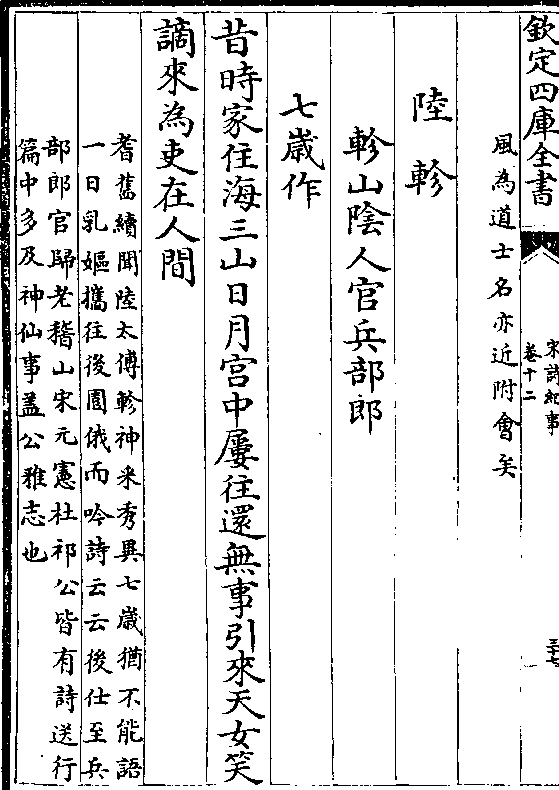 欽定四庫全書
宋詩紀事
卷十二
三十七
風為道士名亦近附會矣
陸軫
軫山陰人官兵部郎
七歲作
昔時家住海三山日月宮中屢往還無事引來天女笑
謫來為吏在人間
耆舊續聞陸太傅軫神采秀異七歲猶不能語
一日乳嫗攜往後園俄而吟詩云云後仕至兵
部郎官歸老稽山宋元憲杜祁公皆有詩送行
篇中多及神仙事蓋公雅志也